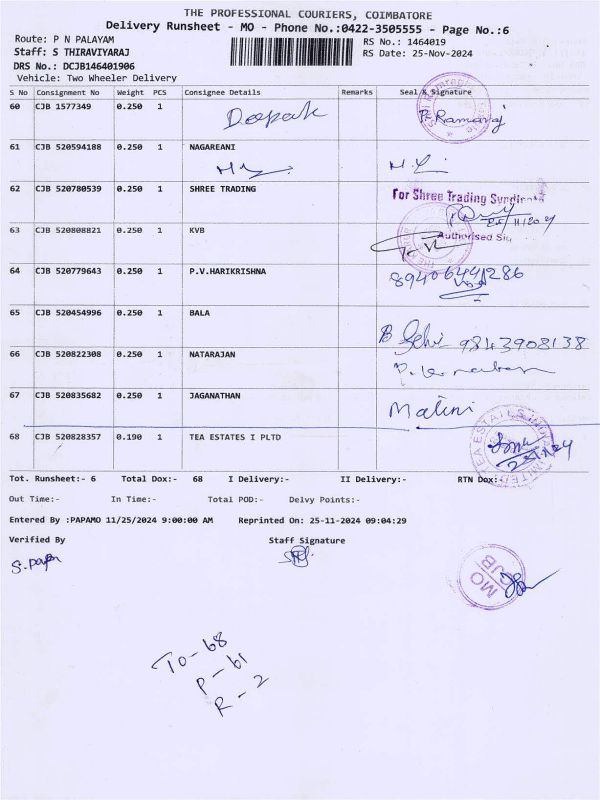 THE PROFESSIONAL COURIERS, COIMBATORE
Delivery Runsheet - MO - Phone No.:0422-3505555 - Page No.:6
Route: P N PALAYAM
RS No.: 1464019
Staff: S THIRAVIYARAJ
RS Date: 25-Nov-2024
DRS No.: DCJB146401906
Vehicle: Two Wheeler Delivery
S No Consignment No Weight PCS Consignee Details Remarks Seal & Signature
60 CJB 1577349 0.250 1 Deepak P. Ramaraj
61 CJB 520594188 0.250 1 NAGAREANI
62 CJB 520780539 0.250 1 SHREE TRADING For Shree Trading Syndicate
63 CJB 520808821 0.250 1 KVB Authorised Sig
64 CJB 520779643 0.250 1 P.V.HARIKRISHNA
65 CJB 520454996 0.250 1 BALA 9843908138
66 CJB 520822308 0.250 1 NATARAJAN
67 CJB 520835682 0.250 1 JAGANATHAN Malini
68 CJB 520828357 0.190 1 TEA ESTATES I PLTD
Tot. Runsheet:- 6 Total Dox:- 68 I Delivery:- II Delivery:- RTN Dox:-
Out Time:- In Time:- Total POD:- Delvy Points:-
Entered By :PAPAMO 11/25/2024 9:00:00 AM Reprinted On: 25-11-2024 09:04:29
Verified By Staff Signature
MO
CJB
To-68
P-61
R-2